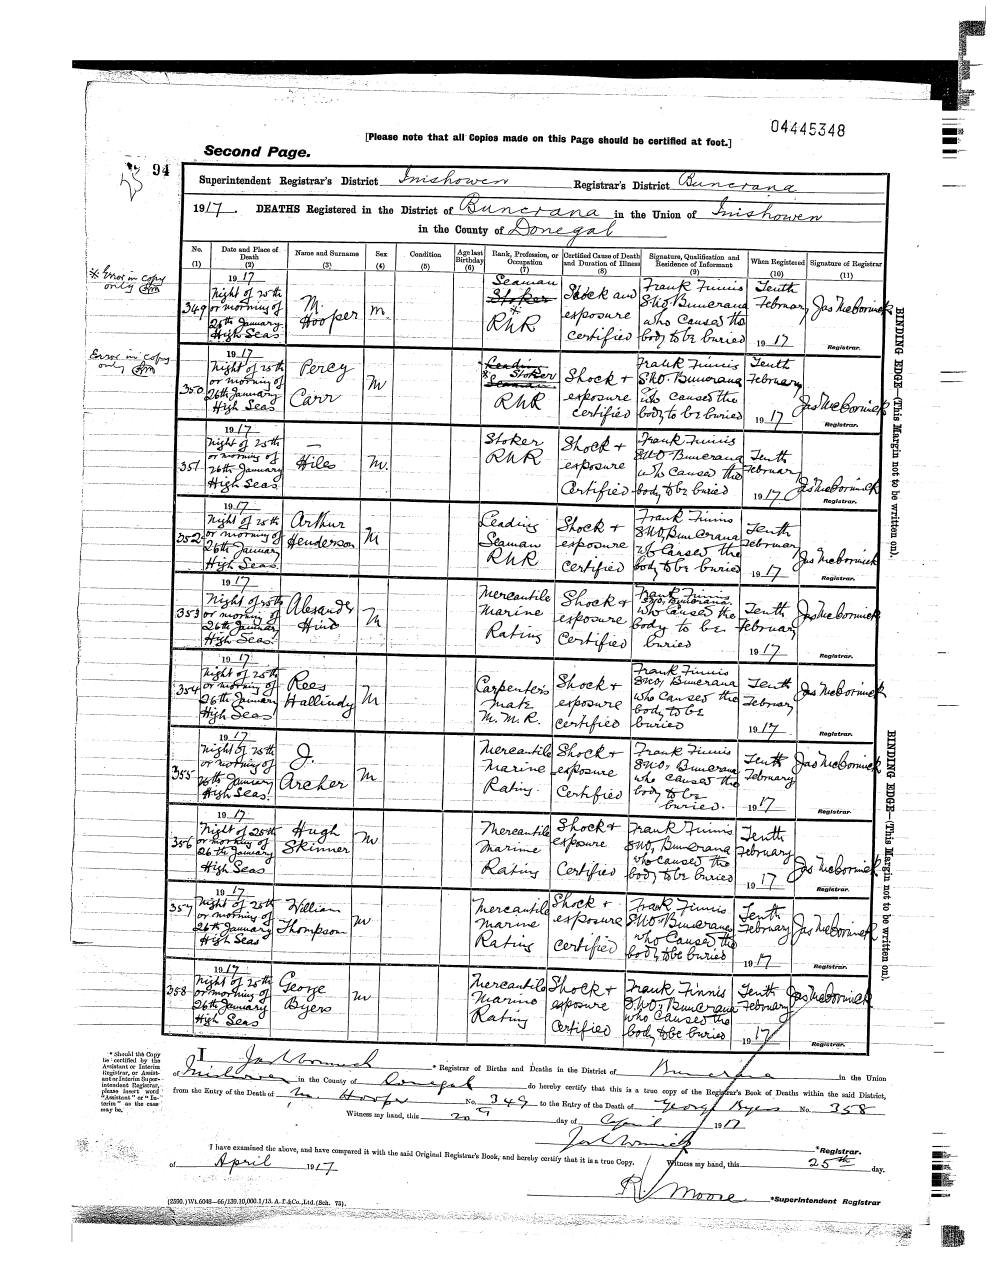 04445348
[Please note that all Copies made on this Page should be certified at foot.]
Second Page.
94
Superintendent Registrar's District Inishowen Registrar's District Buncrana
1917. DEATHS Registered in the District of Buncrana in the Union of Inishowen
in the County of Donegal
No. (1) Date and Place of Death (2) Name and Surname (3) Sex (4) Condition (5) Age last Birthday (6) Rank, Profession, or Occupation (7) Certified Cause of Death and Duration of Illness (8) Signature, Qualification and Residence of Informant (9) When Registered (10) Signature of Registrar (11)
* Error in copy only
349 1917 Night of 25th or morning of 26th January High Seas M. Hooper M. Seaman Stoker * RNR Shock and exposure certified Frank Finnis SNO. Buncrana who caused the body to be buried Tenth February 1917 Jas McCormick Registrar.
Error in copy only
350 1917 Night of 25th or morning of 26th January High Seas Percy Carr M Leading * Stoker Seaman RNR Shock + exposure certified Frank Finnis SNO. Buncrana who caused the body to be buried Tenth February 1917 Jas McCormick Registrar.
351 1917 Night of 25th or morning of 26th January High Seas — Hiles M. Stoker RNR Shock + exposure Certified Frank Finnis SNO Buncrana who caused the body to be buried Tenth February 1917 Jas McCormick Registrar.
352 1917 Night of 25th or morning of 26th January High Seas Arthur Henderson M Leading Seaman RNR Shock + exposure Certified Frank Finnis SNO, Buncrana who caused the body to be buried Tenth February 1917 Jas McCormick Registrar.
353 1917 Night of 25th or morning of 26th January High Seas. Alexander M Mercantile Marine Rating Shock + exposure Certified Frank Finnis SNO, Buncrana who caused the body to be buried Tenth February 1917 Jas McCormick Registrar.
354 1917 Night of 25th or morning of 26th January High Seas Rees Hallindy M Carpenter's mate M.M.R. Shock + exposure certified Frank Finnis SNO, Buncrana who caused the body to be buried Tenth February 1917 Jas McCormick Registrar.
355 1917 Night of 25th or morning of 26th January High Seas. J. Archer M Mercantile Marine Rating. Shock + exposure Certified Frank Finnis SNO, Buncrana who caused the body to be buried. Tenth February 1917 Jas McCormick Registrar.
356 1917 Night of 25th or morning of 26th January High Seas Hugh Skinner M Mercantile Marine Rating Shock + exposure Certified Frank Finnis SNO, Buncrana who caused the body to be buried Tenth February 1917 Jas McCormick Registrar.
357 1917 Night of 25th or morning of 26th January High Seas William Thompson M Mercantile Marine Rating Shock + exposure certified Frank Finnis SNO Buncrana who caused the body to be buried Tenth February 1917 Jas McCormick Registrar.
358 1917 Night of 25th or morning of 26th January High Seas George Byers M Mercantile Marine Rating Shock + exposure Certified Frank Finnis S.NO, Buncrana who caused the body to be buried Tenth February 1917 Jas McCormick Registrar.
BINDING EDGE—(This Margin not to be written on).
BINDING EDGE—(This Margin not to be written on).
* Should the Copy be certified by the Assistant or Interim Registrar, or Assistant or Interim Superintendent Registrar, please insert word "Assistant" or "Interim" as the case may be.
I Jas McCormick * Registrar of Births and Deaths in the District of Buncrana in the Union
of Inishowen in the County of Donegal do hereby certify that this is a true copy of the Registrar's Book of Deaths within the said District,
from the Entry of the Death of M Hooper No. 349 to the Entry of the Death of George Byers No. 358
Witness my hand, this 20th day of April 1917
Jas McCormick *Registrar.
I have examined the above, and have compared it with the said Original Registrar's Book, and hereby certify that it is a true Copy. Witness my hand, this 25th day.
of April 1917
R Moore *Superintendent Registrar
(2590.) Wt.6048—66/139.10,000.1/13. A.T.&Co.,Ltd.(Sch. 73).